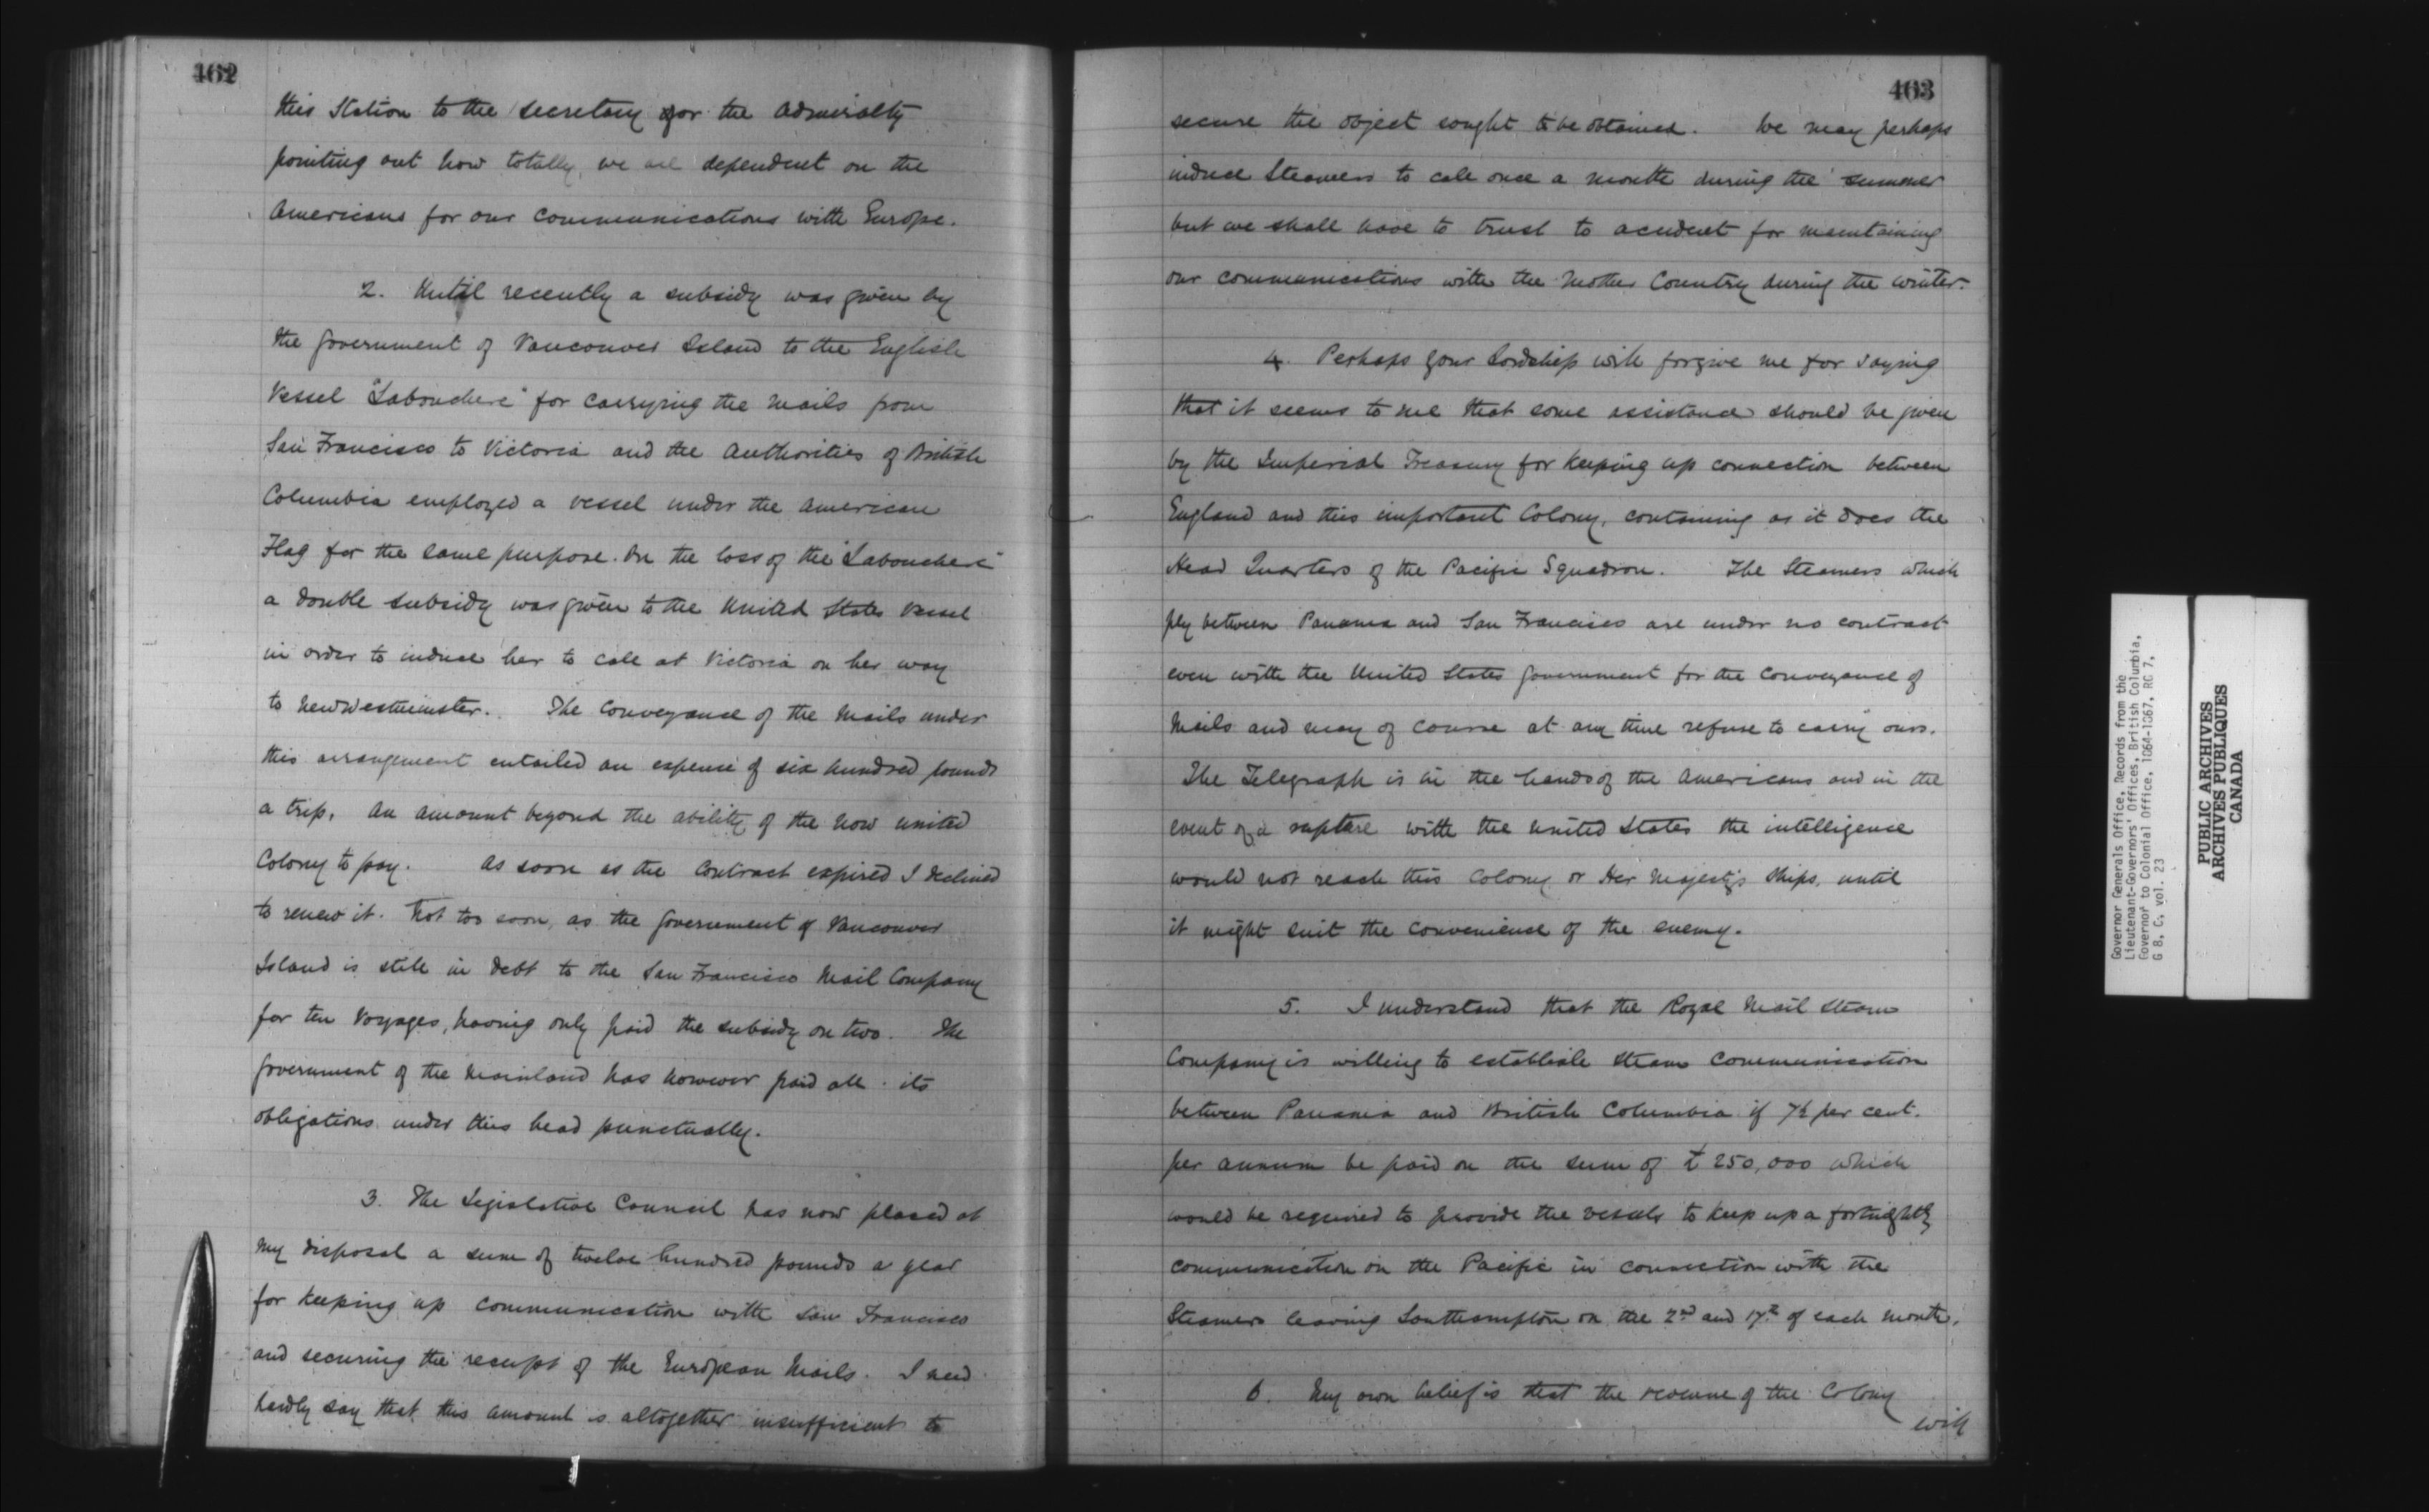 462
this Station to the Secretary for the Admiralty
pointing out how totally we are dependent on the
Americans for our communications with Europe.
2. Until recently a subsidy was given by
the Government of Vancouver Island to the English
Vessel "Labouchere" for carrying the Mails from
San Francisco to Victoria and the Authorities of British
Columbia employed a vessel under the American
Flag for the same purpose. On the loss of the "Labouchere"
a double subsidy was given to the United States Vessel
in order to induce her to call at Victoria on her way
to New Westminster. The Conveyance of the Mails under
this arrangement entailed an expense of six hundred pounds
a trip, an amount beyond the ability of the now united
Colony to pay. As soon as the Contract expired I declined
to renew it. Not too soon, as the Government of Vancouver
Island is still in debt to the San Francisco Mail Company
for ten Voyages, having only paid the subsidy on two. The
Government of the Mainland has however paid all its
obligations under this head punctually.
3. The Legislative Council has now placed at
my disposal a sum of twelve hundred pounds a year
for keeping up communication with San Francisco
and securing the receipt of the European Mails. I need
hardly say that this amount is altogether insufficient to
463
secure the object sought to be obtained. We may perhaps
induce Steamers to call once a month during the summer
but we shall have to trust to accident for maintaining
our communications with the Mother Country during the winter.
4. Perhaps Your Lordship will forgive me for saying
that it seems to me that some assistance should be given
by the Imperial Treasury for keeping up connection between
England and this important Colony, containing as it does the
Head Quarters of the Pacific Squadron. The Steamers which
ply between Panama and San Francisco are under no contract
even with the United States Government for the Conveyance of
Mails and may of course at any time refuse to carry ours.
The Telegraph is in the hands of the Americans and in the
event of a rupture with the United States the intelligence
would not reach this Colony or Her Majesty's Ships, until
it might suit the convenience of the enemy.
5. I understand that the Royal Mail Steam
Company is willing to establish steam communication
between Panama and British Columbia if 7½ per cent.
per annum be paid on the sum of £250,000 which
would be required to provide the vessels to keep up a fortnightly
communication on the Pacific in connection with the
Steamers leaving Southampton on the 2nd and 17th of each month.
6. My own belief is that the revenue of the Colony
will
Governor Generals Office, Records from the
Lieutenant-Governors' Offices, British Columbia,
Governor to Colonial Office, 1864-1867, RG 7,
G 8, C, vol. 23
PUBLIC ARCHIVES
ARCHIVES PUBLIQUES
CANADA